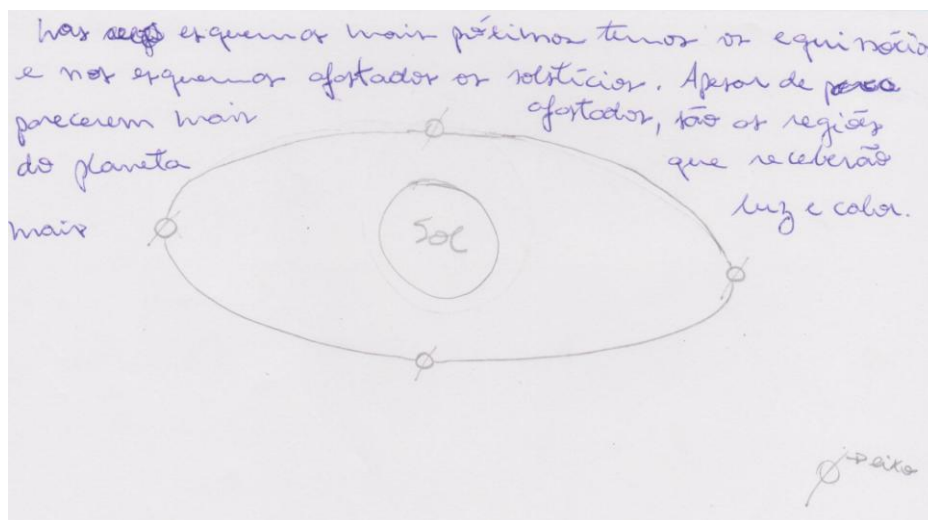 Nos esquemas mais próximos temos os equinócio
e nos esquemas afastados os solstícios. Apesar de
parecerem mais afastados, são as regiões
do planeta que receberão
mais luz e calor.
Sol
eixo